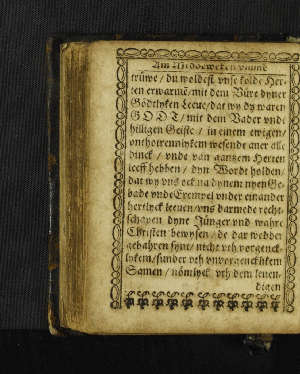 Am Middeweken vmme
trüwe / du woldest vnse kolde Her-
ten erwarmē / mit dem Vüre dyner
Gödtlyken Leeue / dat wy dy waren
GODT / mit dem Vader vnde
hilligen Geiste / in einem ewigen /
wesende auer alle
dinck / vnde van gantzem Herten
leeff hebben / dyn Wordt holden /
dat wy vns ock na dynem nyen Ge-
bade vnde Exempel vnder einander
hertlyck leeuen / vns darmede recht-
schapen dyne Jünger vnd wahre
Christen bewysen / de dar wedder
gebahren synt / nicht vth vorgenck-
lykem / sunder vth vnvorgencklikem
Samen / nömlyck vth dem leuen-
digen